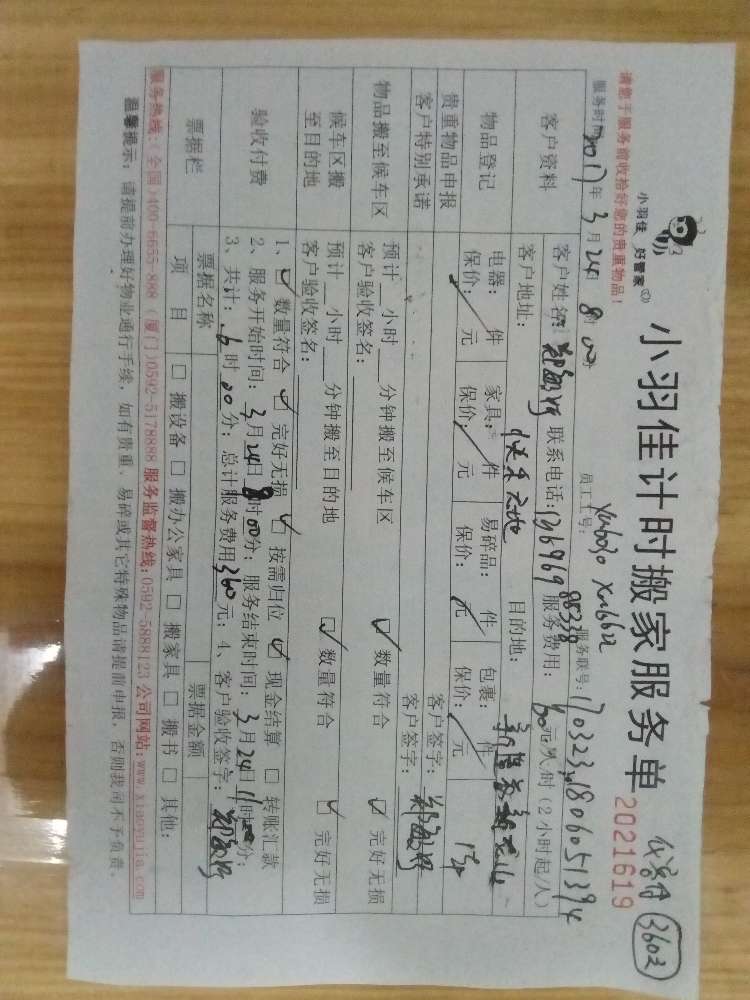 小羽佳计时搬家服务单
小羽佳 好管家
2021619
360元
请您于服务前收拾好您的贵重物品!
员工工号: xm6030 xm66
服务联号: 170323 1806051394
服务时间 2017年 3月 24日 8时 00分
客户资料
客户姓名: 联系电话: 13696988338 服务费用: 60元/人/时(2小时起/人)
客户地址: 目的地:
物品登记
电器: 件 家具: 件 易碎品: 件 包裹: 件
保价: 元 保价: 元 保价: 元 保价: 元
贵重物品申报
客户签字:
客户特别承诺
客户签字:
物品搬至候车区
预计 小时 分钟搬至候车区 ☑ 数量符合 ☑ 完好无损
客户验收签名:
候车区搬至目的地
预计 小时 分钟搬至目的地 ☑ 数量符合 ☑ 完好无损
客户验收签名:
验收付费
1、☑ 数量符合 ☑ 完好无损 ☑ 按需归位 ☑ 现金结算 □ 转账汇款
2、服务开始时间: 3月24日8时00分; 服务结束时间: 3月24日11时 分;
3、共计: 6时00分; 总计服务费用360元; 4、客户验收签字:
票据栏
票据名称 票据金额
项目 □ 搬设备 □ 搬办公家具 □ 搬家具 □ 搬书 □ 其他:
服务热线:(全国)400-6655-888 (厦门)0592-5178888 服务监督热线:0592-5888123 公司网站:www.xiaoyujia.com
温馨提示: 请提前办理好物业通行手续, 如有贵重、易碎或其它特殊物品请提前申报, 否则我司不予负责。